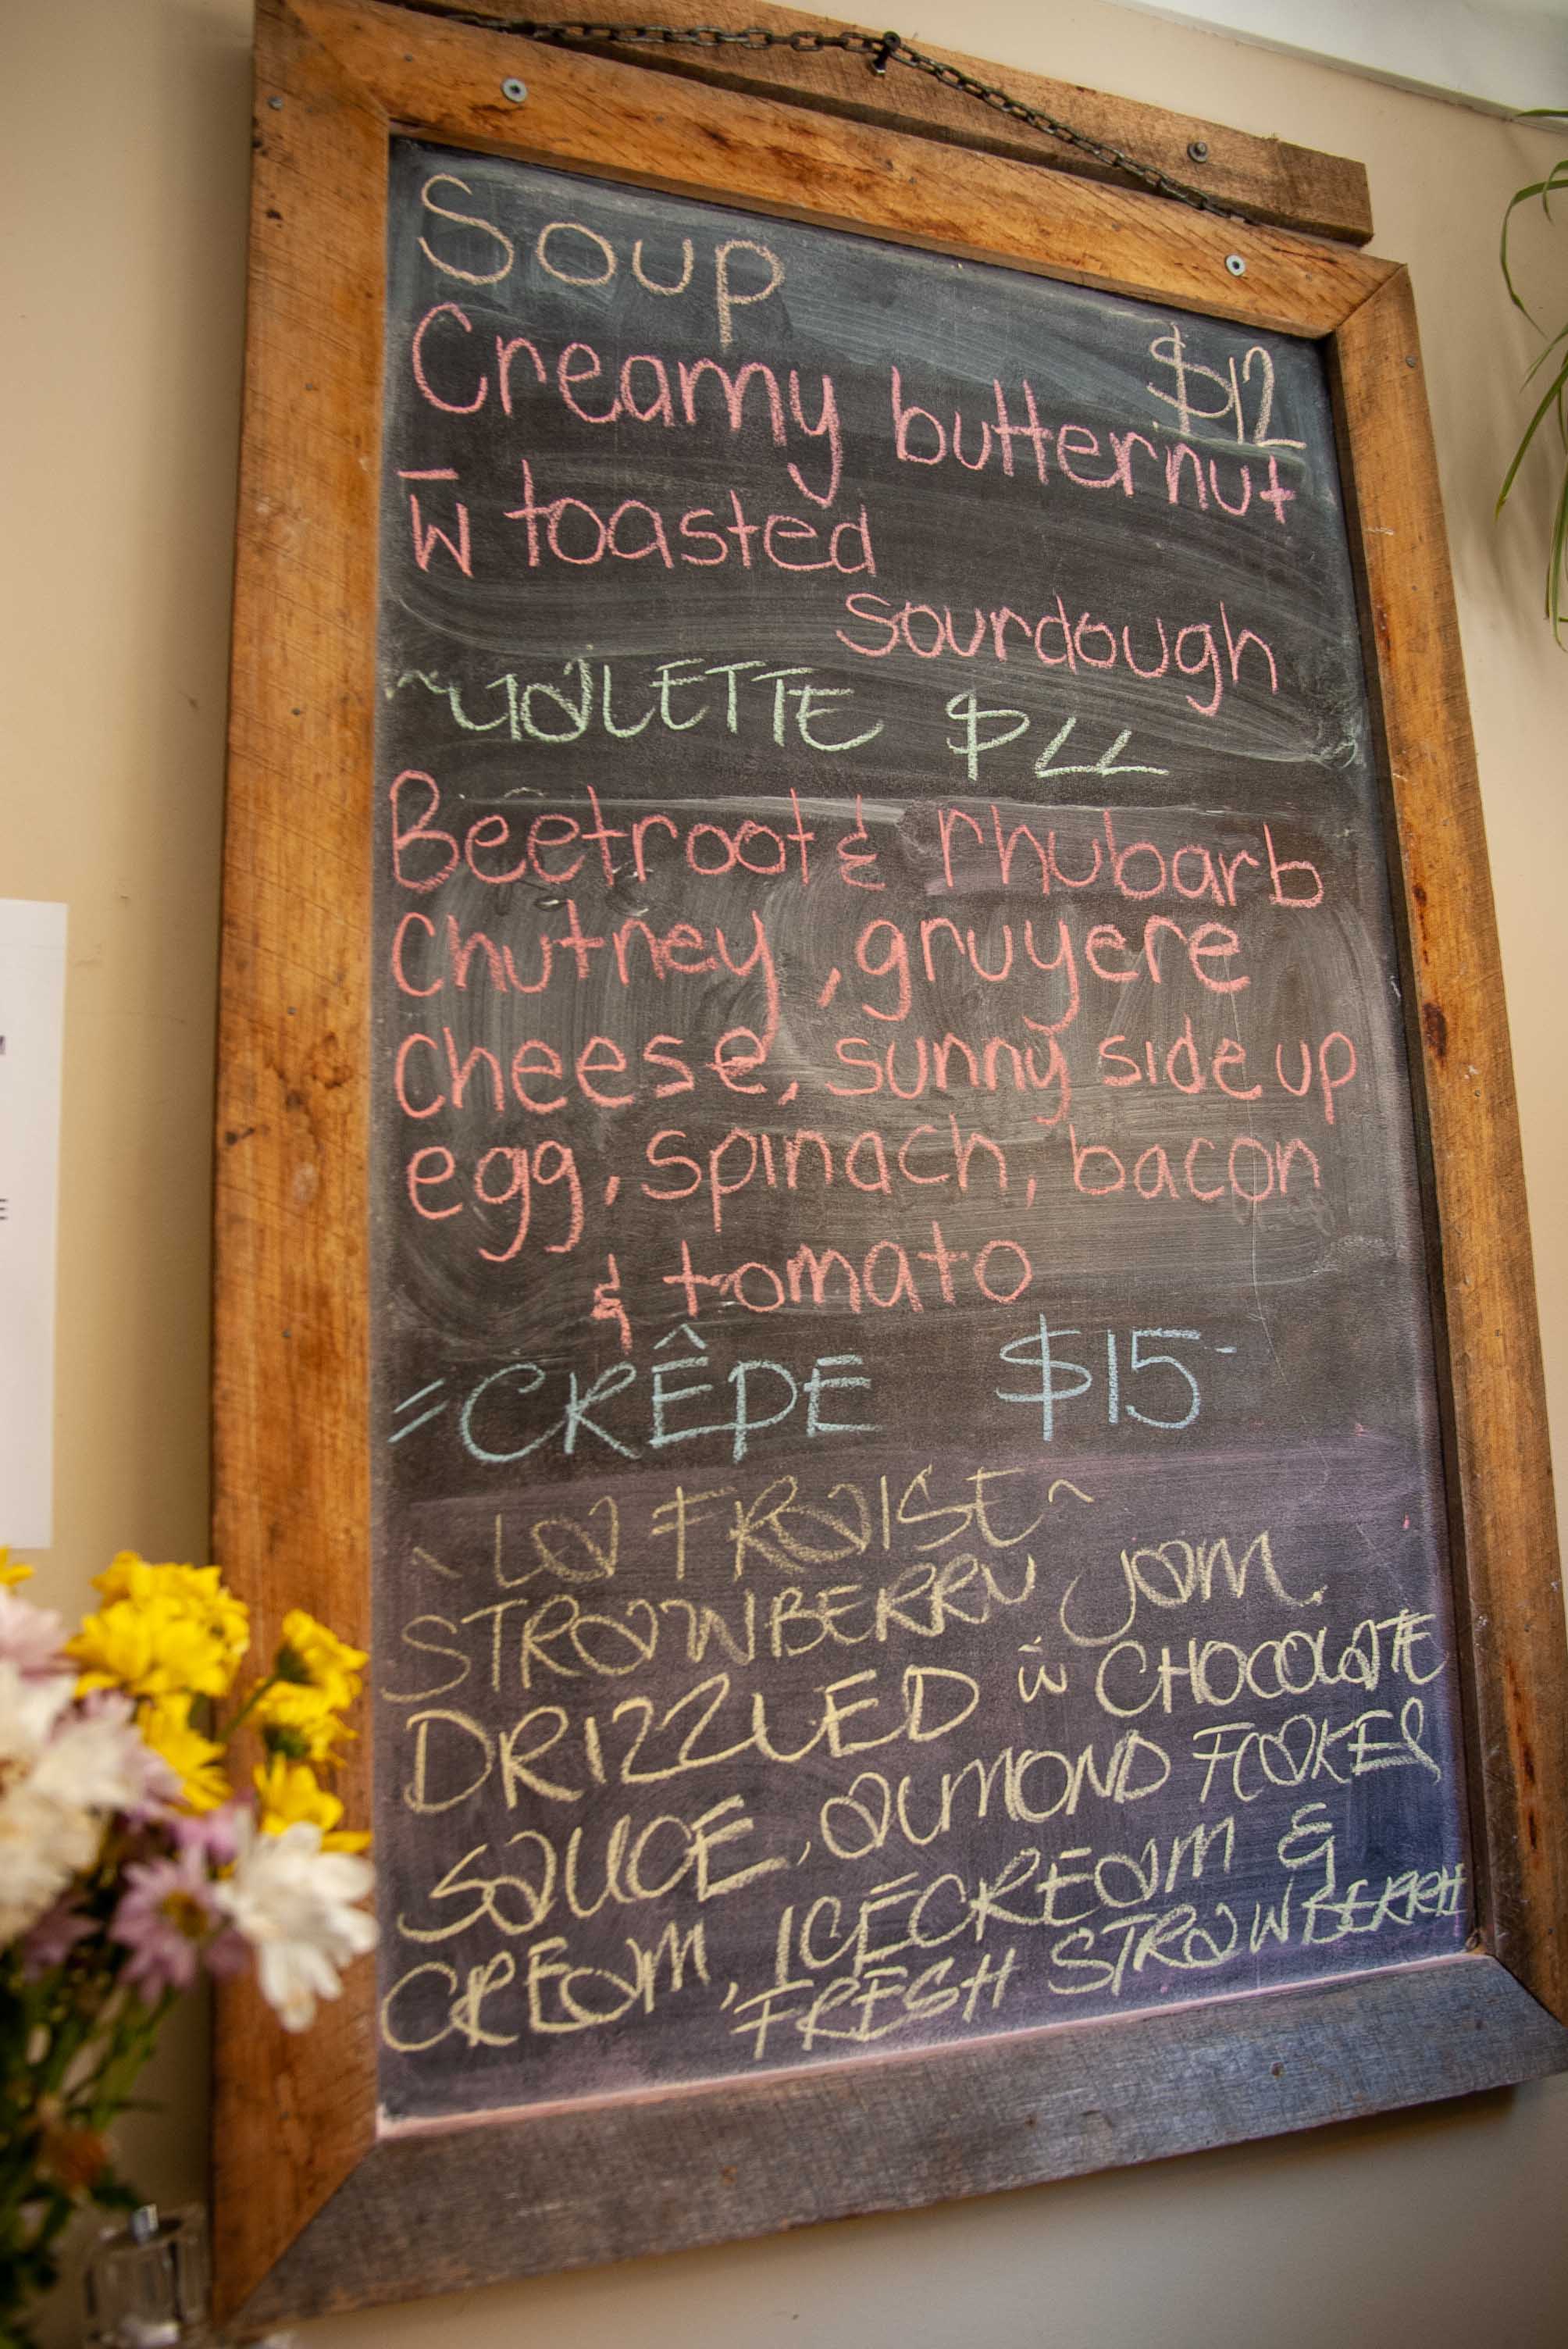 Soup
$12
Creamy butternut
w̄ toasted
sourdough
~GALETTE $22
Beetroot & rhubarb
Chutney, gruyere
cheese, sunny side up
egg, spinach, bacon
& tomato
=CRÊPE $15-
~LA FRAISE~
STRAWBERRY JAM
DRIZZLED w̄ CHOCOLATE
SAUCE, ALMOND FLAKES
CREAM, ICECREAM &
FRESH STRAWBERRY